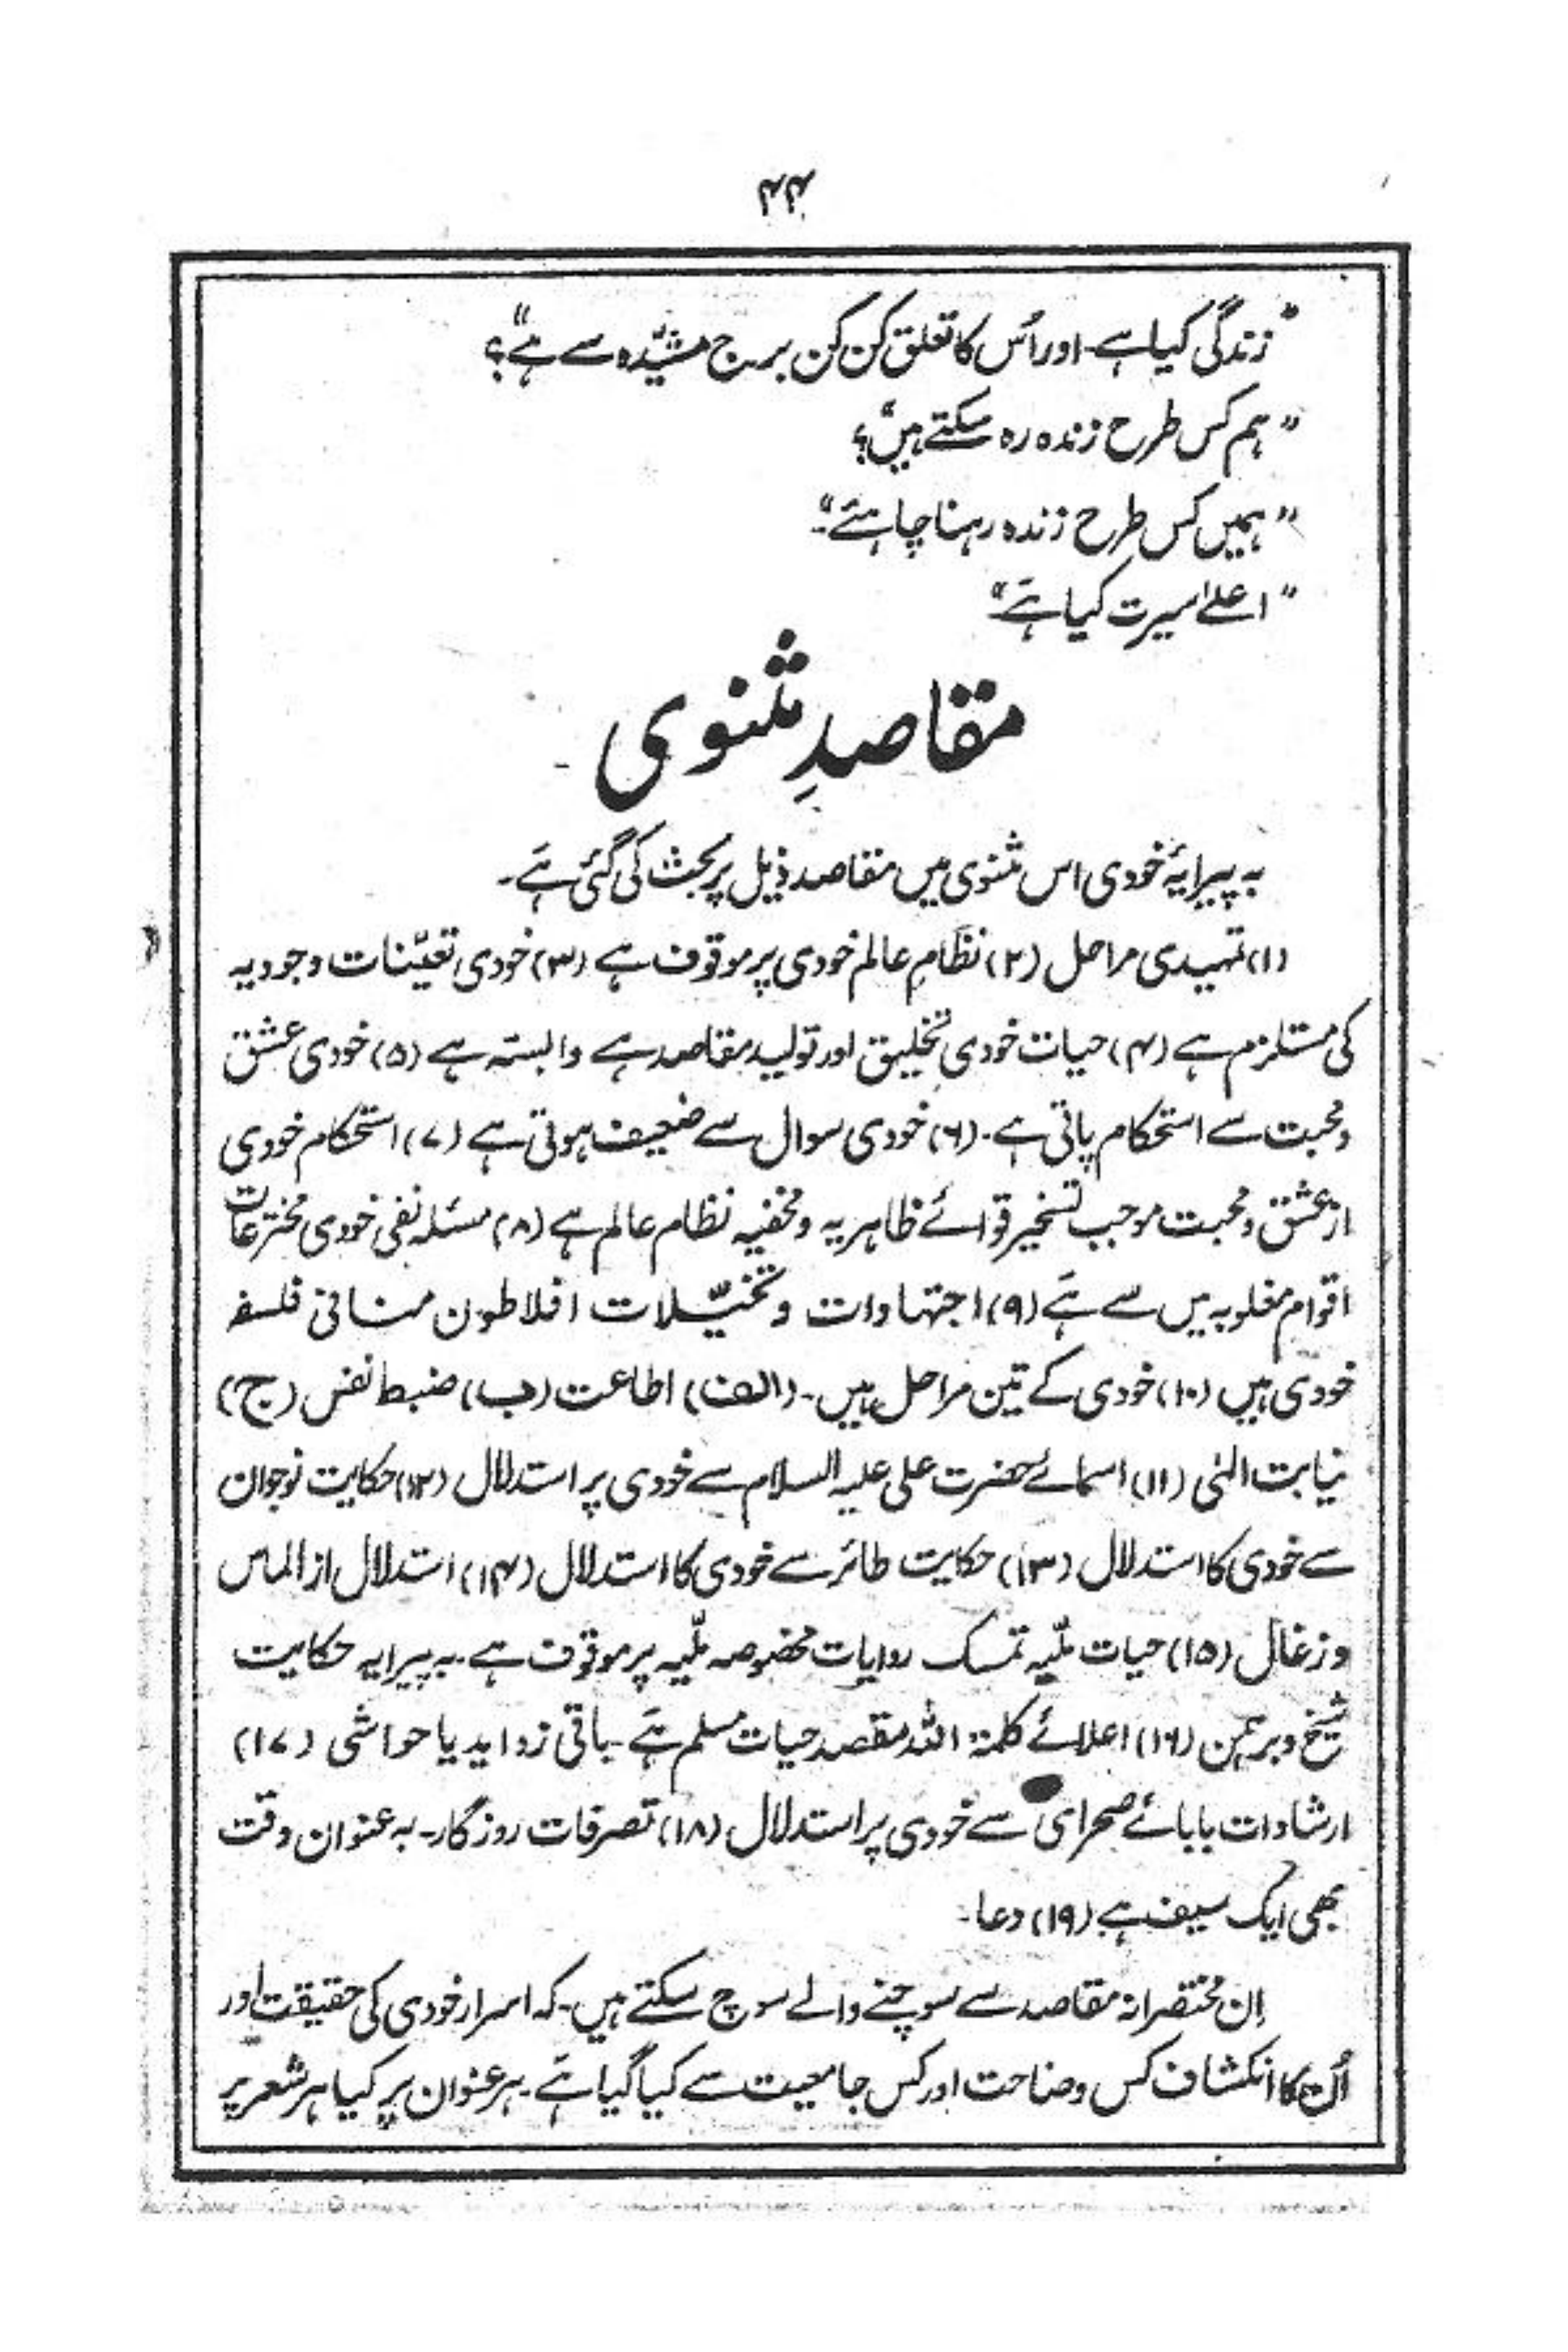 ۴۴
"زندگی کیا ہے۔ اور اُس کا تعلق کن کن بروج مشیّدہ سے ہے"؟
"ہم کس طرح زندہ رہ سکتے ہیں"؟
"ہمیں کس طرح زندہ رہنا چاہئے"۔
"اعلےٰ سیرت کیا ہَے"
مقاصدِ مثنوی
بہ پیرایۂ خودی اس مثنوی میں مقاصد ذیل پر بحث کی گئی ہَے۔
(۱) تمہیدی مراحل (۲) نظامِ عالم خودی پر موقوف ہے (۳) خودی تعیّنات وجودیہ
کی مستلزم ہے (۴) حیات خودی تخلیق اور تولید مقاصد سے وابستہ ہے (۵) خودی عشق
ومحبت سے استحکام پاتی ہے۔ (۶) خودی سوال سے ضعیف ہوتی ہے (۷) استحکام خودی
از عشق و محبت موجب تسخیر قوائے ظاہریہ و مخفیہ نظام عالم ہے (۸) مسئلہ نفی خودی مخترعات
اقوام مغلوبہ میں سے ہَے (۹) اجتہادات و تخیّلات افلاطون منافی فلسفہ
خودی ہیں (۱۰) خودی کے تین مراحل ہیں۔ (الف) اطاعت (ب) ضبط نفس (ج)
نیابت الٰہی (۱۱) اسمائے حضرت علی علیہ السلام سے خودی پر استدلال (۱۲) حکایت نوجوان
سے خودی کا استدلال (۱۳) حکایت طائر سے خودی کا استدلال (۱۴) استدلال از الماس
وزغال (۱۵) حیات ملّیہ تمسک روایات مخصوصہ ملّیہ پر موقوف ہے۔ بہ پیرایہ حکایت
شیخ و برہمن (۱۶) اعلائے کلمۃ اللہ مقصد حیات مسلم ہَے۔ باقی زواید یا حواشی (۱۷)
ارشادات بابائے صحرای سے خودی پر استدلال (۱۸) تصرفات روزگار۔ بہ عنوان وقت
بھی ایک سیف ہے (۱۹) دعا۔
اِن مختصرانہ مقاصد سے سوچنے والے سوچ سکتے ہیں۔ کہ اسرار خودی کی حقیقت اور
اُن کا انکشاف کس وضاحت اور کس جامعیت سے کیا گیا ہَے۔ ہر عنوان پر کیا ہر شعر پر